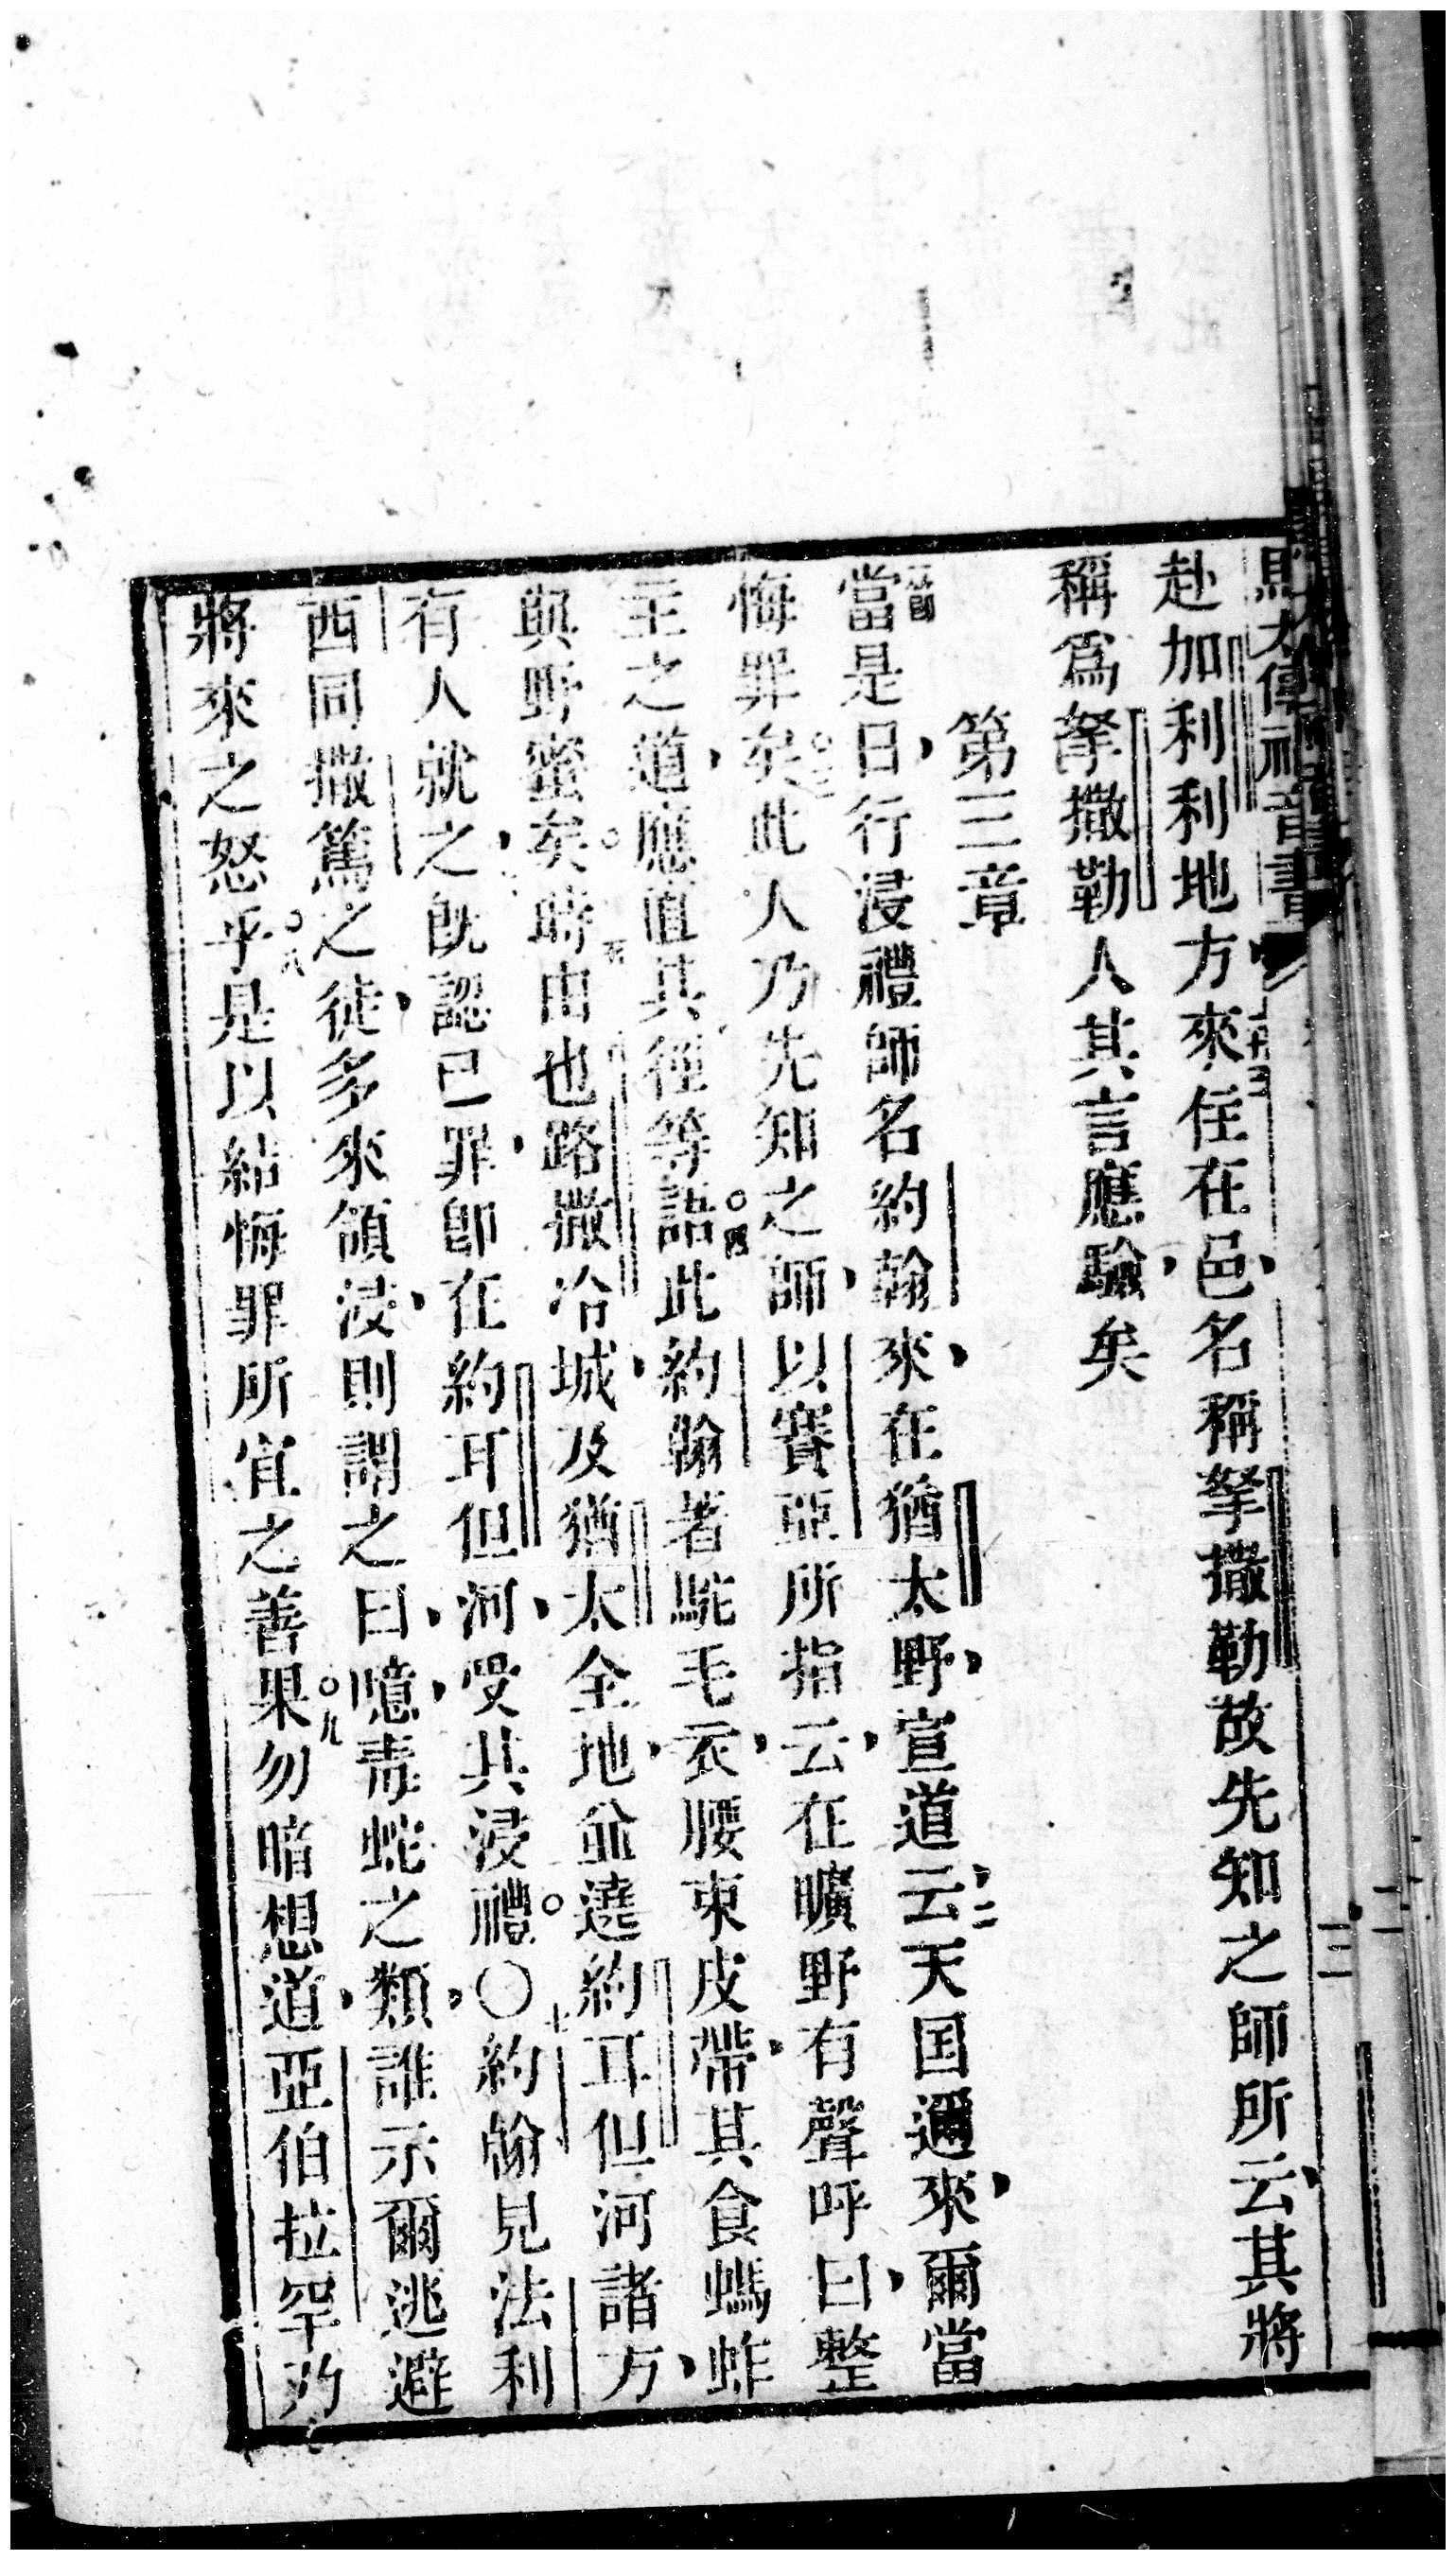 馬太傳福音書
三
赴加利利地方來住在邑名稱拏撒勒故先知之師所云其將
稱爲拏撒勒人其言應驗矣
第三章
一節當是日行浸禮師名約翰來在猶太野宣道二云天国邇來爾當
悔罪矣三此人乃先知之師以賽亞所指云在曠野有聲呼曰整
主之道應直其徑等語四此約翰者駝毛衣腰束皮帶其食螞蚱
與野蜜矣五時由也路撒冷城及猶太全地並遶約耳但河諸方
有人就之旣認已罪卽在約耳但河受其浸禮〇七約翰見法利
西同撒篤之徒多來領浸則謂之曰噫毒蛇之類誰示爾逃避
將來之怒乎八是以結悔罪所宜之善果九勿暗想道亞伯拉罕乃